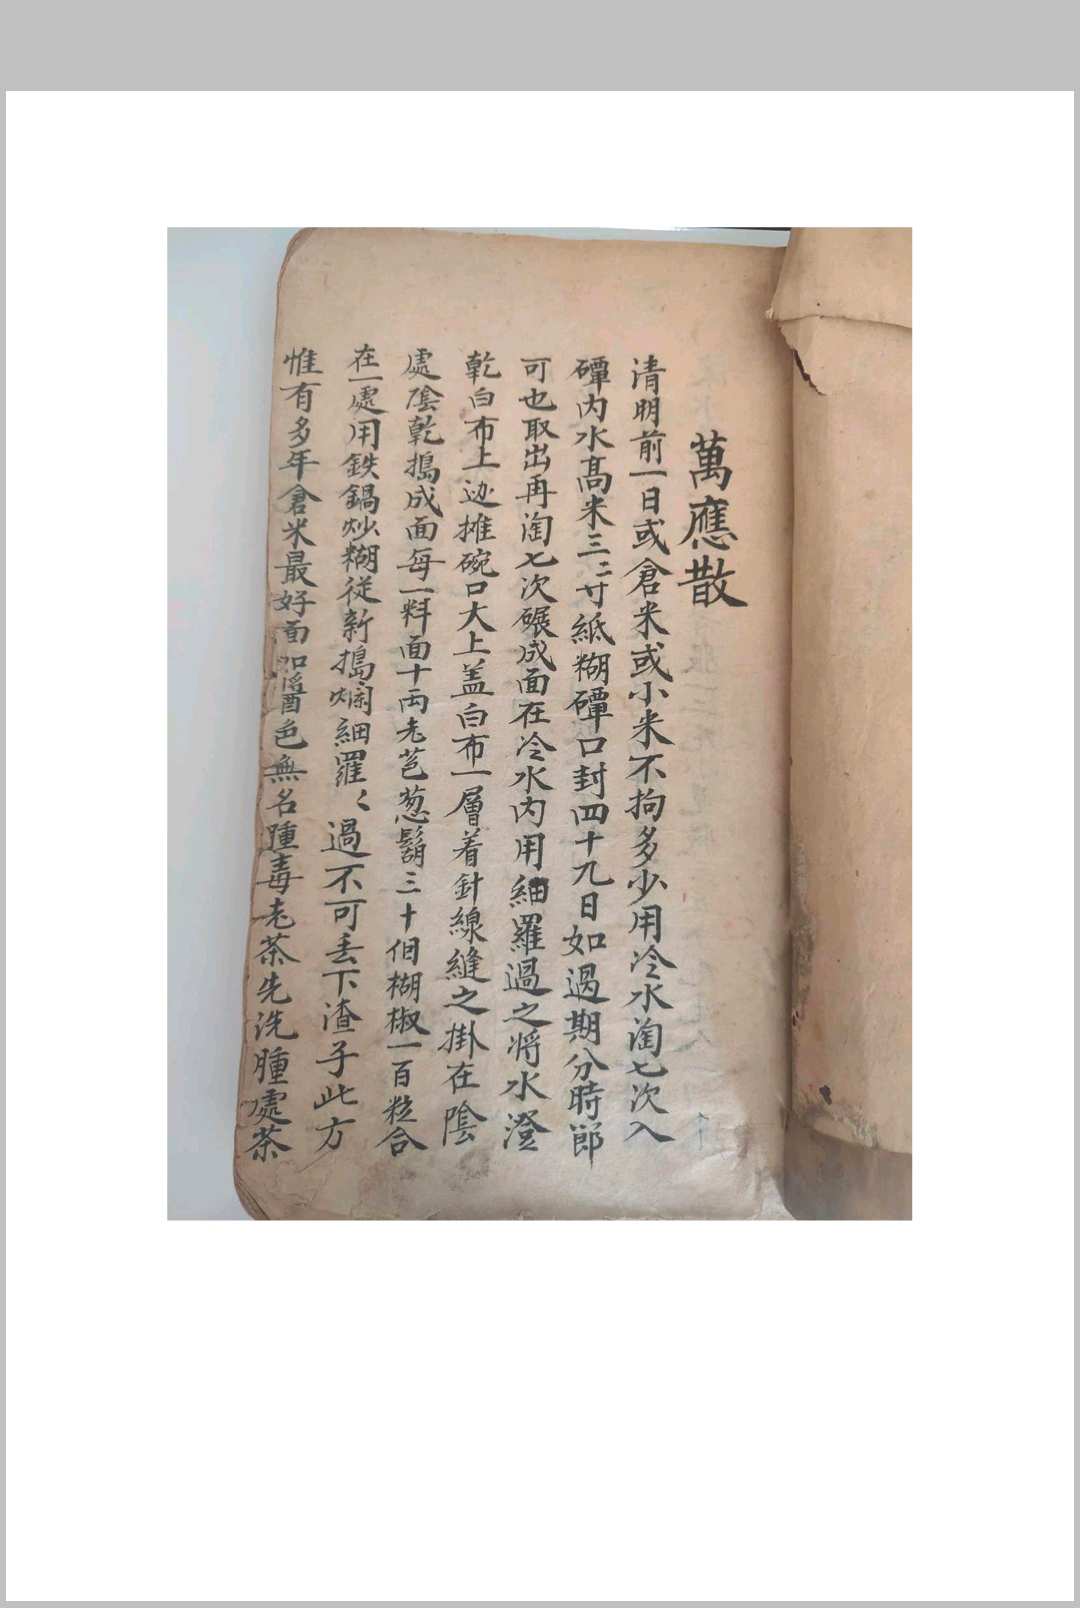 萬應散
清明前一日或倉米或小米不拘多少用冷水淘七次入
罈內水高米三二寸紙糊罈口封四十九日如過期分時郎
可也取出再淘七次碾成面在冷水內用細羅過之将水澄
乾白布上边摊碗口大上盖白布一層着針線縫之掛在陰
處陰乾搗成面每一料面十両老芭葱鬍三十個糊椒一百粒合
在一處用鉄鍋炒糊從新搗爛細羅〻過不可丢下渣子此方
惟有多年倉米最好面如醬色無名腫毒老茶先洗腫處茶